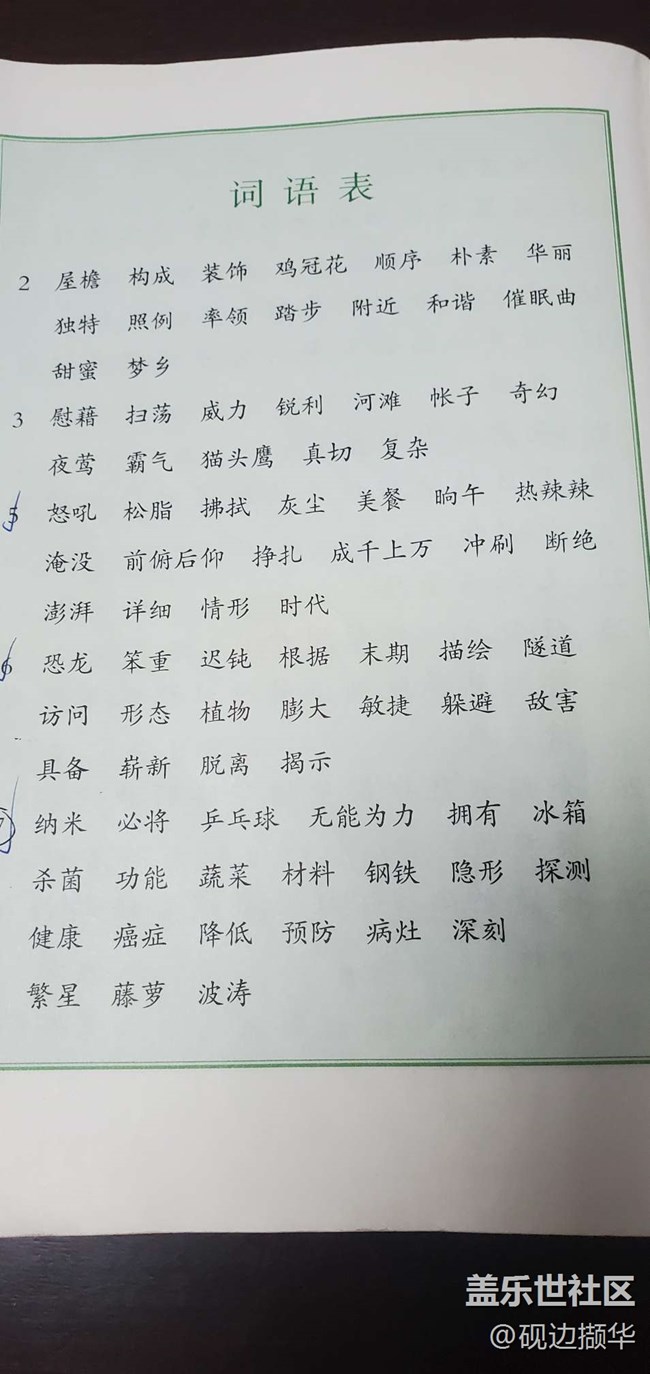 词语表
2 屋檐 构成 装饰 鸡冠花 顺序 朴素 华丽
独特 照例 率领 踏步 附近 和谐 催眠曲
甜蜜 梦乡
3 慰藉 扫荡 威力 锐利 河滩 帐子 奇幻
夜莺 霸气 猫头鹰 真切 复杂
5 怒吼 松脂 拂拭 灰尘 美餐 晌午 热辣辣
淹没 前俯后仰 挣扎 成千上万 冲刷 断绝
澎湃 详细 情形 时代
6 恐龙 笨重 迟钝 根据 末期 描绘 隧道
访问 形态 植物 膨大 敏捷 躲避 敌害
具备 崭新 脱离 揭示
7 纳米 必将 乒乓球 无能为力 拥有 冰箱
杀菌 功能 蔬菜 材料 钢铁 隐形 探测
健康 癌症 降低 预防 病灶 深刻
繁星 藤萝 波涛
盖乐世社区
@砚边撷华